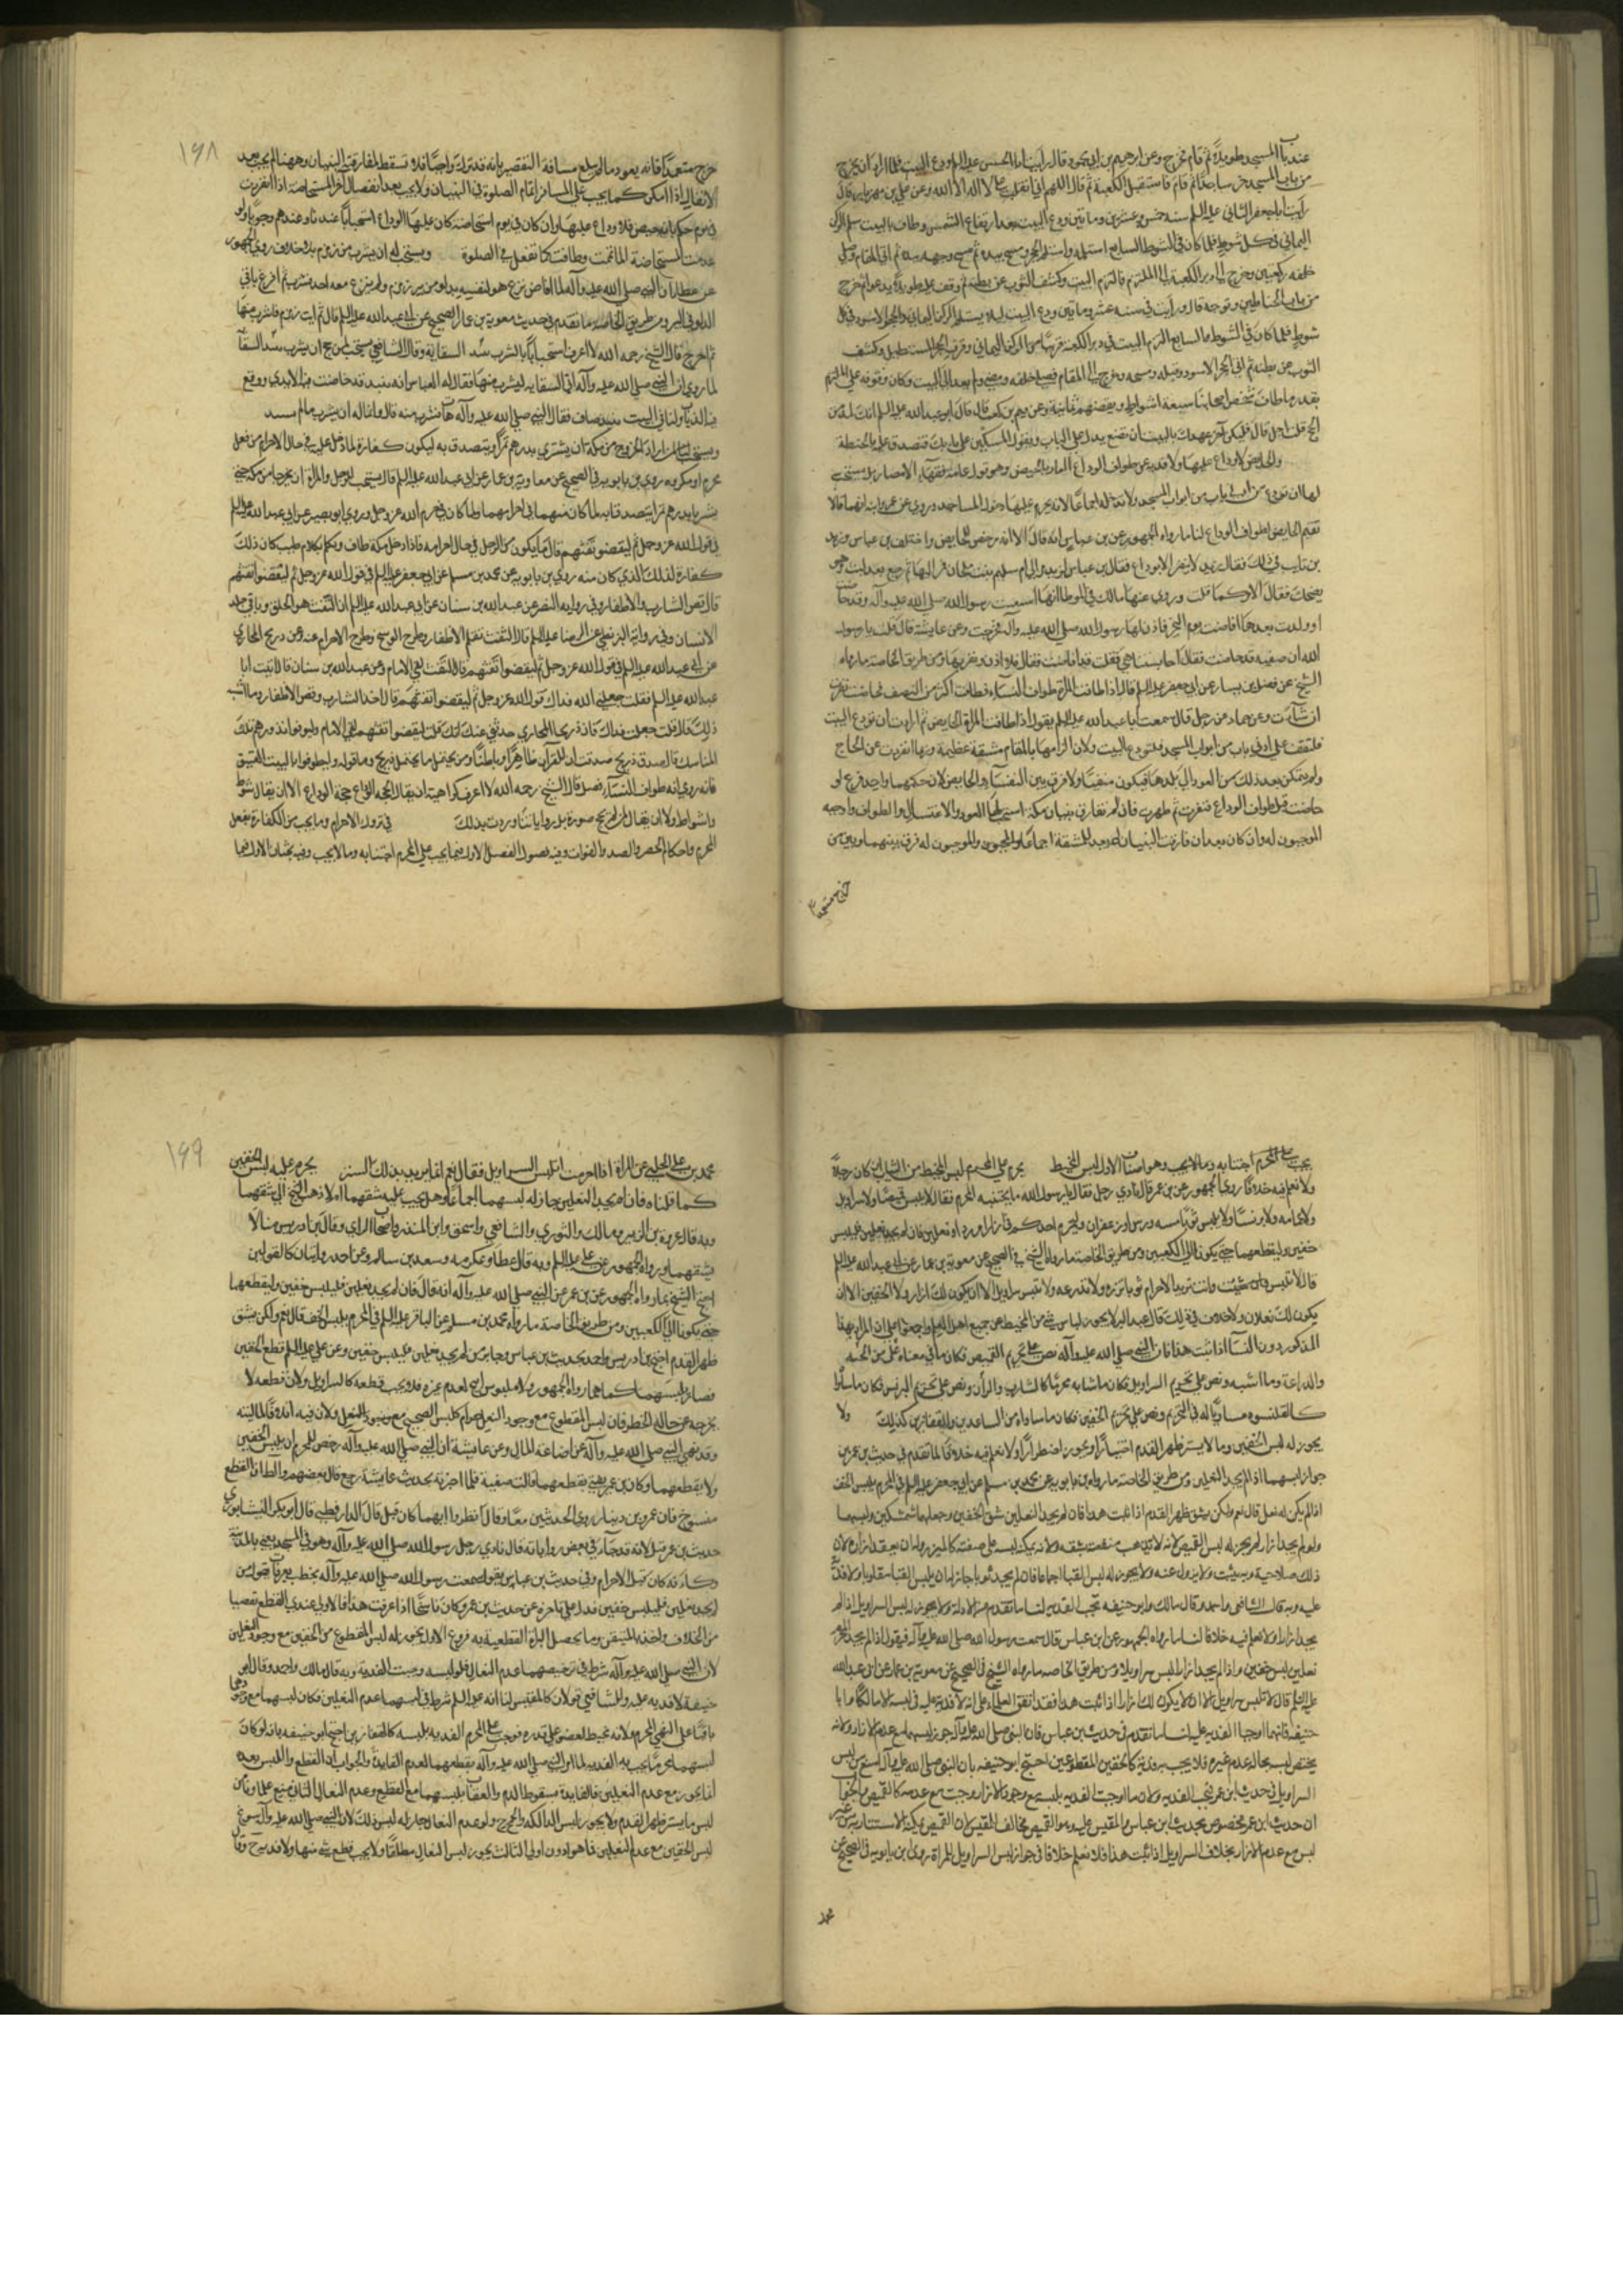 عند باب المسجد طويلا ثم قام فخرج وعن ابرهيم بن ابي محمود قال رأيت ابا الحسن عليه السلم ودع البيت فلما اراد ان يخرج
من باب المسجد خر ساجدا ثم قام فاستقبل الكعبة ثم قال اللهم اني انقلب على لا اله الا الله وعن علي بن مهزيار قال
رأيت ابا جعفر الثاني عليه السلم سنة خمس وعشرين ومأتين ودع البيت بعد ارتفاع الشمس وطاف بالبيت يستلم الركن
اليماني في كل شوط فلما كان في الشوط السابع استلمه واستلم الحجر ومسح بيده ثم مسح وجهه بيده ثم اتى المقام وصلى
خلفه ركعتين وخرج الى دبر الكعبة الى الملتزم فالتزم البيت وكشف الثوب عن بطنه ثم وقف عليه طويلا يدعو ثم خرج
من باب الحناطين وتوجه قال ورأيت في سنة عشر ومأتين ودع البيت ليلا يستلم الركن اليماني والحجر الاسود في كل
شوط فلما كان في الشوط السابع التزم البيت في دبر الكعبة قريبا من الركن اليماني وفوق الحجر المستطيل وكشف
الثوب عن بطنه ثم اتى الحجر الاسود وقبله ومسحه وخرج الى المقام فصلى خلفه ومضى ولم يعد الى البيت وكان وقوفه على الملتزم
بقدر ما طاف بعض اصحابنا سبعة اشواط وبعضهم ثمانية وعن قثم بن كعب قال قال ابو عبد الله عليه السلم انك لمدمن
الحج قلت اجل قال فليكن آخر عهدك بالبيت ان تضع يدك على الباب وتقول المسكين على بابك فتصدق عليه بالجنة
والحائض لا وداع عليها ولا فدية عن طواف الوداع
لها ان تودع من ادنى باب من ابواب المسجد ولا تدخله اجماعا لانه يحرم عليها دخول المساجد وروي عن عمر وابنه انهما قالا
تقيم الحايض لطواف الوداع لنا ما رواه الجمهور عن بن عباس انه قال الا انه رخص للحايض واختلف بن عباس وزيد
الله ان صفية قد حاضت فقال احابستنا هي فقلت قد افاضت فقال فلا اذن ومن طريق الخاصة ما رواه
الشيخ عن فضيل بن يسار عن ابي جعفر عليه السلم قال اذا طافت المرأة طواف النساء فطافت اكثر من النصف فحاضت نفرت
ان شآءت وعن حماد عن رجل قال سمعت ابا عبد الله عليه السلم يقول اذا طافت المرأة الحايض ثم ارادت ان تودع البيت
فلتقف على ادنى باب من ابواب المسجد فلتودع البيت ولان الزامها بالمقام مشقة عظيمة وربما انفردت عن الحاج
ولم يتمكن بعد ذلك من العود الى بلدها فيكون منفيا ولا فرق بين النفسآء والحايض لان حكمهما واحد فرع لو
حاضت قبل طواف الوداع فنفرت ثم طهرت فان لم تفارق بنيان مكة استحب لها العود والاغتسال والطواف واوجبه
الموجبون له وان كان بعد ان فارقت البنيان لم تعد للمشقة اجماعا والموجبون له فرق بينهما وبين من
خرج متعمدا
١٩٨
خرج متعمدا فانه يعود ما لم يبلغ مسافة التقصير بانه قد ترك واجبا فلا تسقط لمفارقته البنيان وههنا لم يجب بعد
الانفصال اذا امكن كما يجب على المسافر اتمام الصلوة في البنيان ولا يجب بعد انفصاله آخر المستحاضة اذا نفرت
في يوم حكم بانه حيض فلا وداع عليها وان كان في يوم استحاضة كان عليها الوداع استحبابا عندنا وعندهم وجوبا ولو
عدمت المستحاضة الماء تيممت وطافت كما تفعل في الصلوة ويستحب له ان يشرب من زمزم بلا خلاف روى الجمهور
عن عطا ان النبي صلى الله عليه وآله لما افاض نزع هو لنفسه بدلو من بير زمزم ولم ينزع معه احد فشرب ثم افرغ باقي
الدلو في البير ومن طريق الخاصة ما تقدم في حديث معوية بن عمار الصحيح عن ابي عبد الله عليه السلم قال ثم ايت زمزم فاشرب منها
ثم اخرج قال الشيخ رحمه الله لا اعرف استحبابا بالشرب من السقاية وقال الشافعي يستحب لمن حج ان يشرب نبيذ السقاية
ويستحب لمن اراد الخروج من مكة ان يشتري بدرهم تمرا ويتصدق به ليكون كفارة لما دخل عليه في حال الاحرام من فعل
محرم او مكروه روى بن بابويه في الصحيح عن معاوية بن عمار عن ابي عبد الله عليه السلم قال يستحب للرجل والمرأة ان لا يخرجا من مكة حتى
يشتريا بدرهم تمرا يتصدقا به لما كان منهما في احرامهما ولما كان في حرم الله عز وجل وروى ابو بصير عن ابي عبد الله عليه السلم
في قول الله عز وجل ثم ليقضوا تفثهم قال ما يكون من الرجل في حال احرامه فاذا دخل مكة طاف وتكلم بكلام طيب كان ذلك
كفارة لذلك الذي كان منه روى بن بابويه عن محمد بن مسلم عن ابي جعفر عليه السلم في قول الله عز وجل ثم ليقضوا تفثهم
قال قص الشارب والاظفار وفي رواية النضر عن عبد الله بن سنان عن ابي عبد الله عليه السلم ان التفث هو الحلق وما في جلد
الانسان وفي رواية البزنطي عن الرضا عليه السلم قال التفث تقليم الاظفار وطرح الوسخ وطرح الاحرام عنه وعن ذريح المحاربي
عن ابي عبد الله عليه السلم في قول الله عز وجل ثم ليقضوا تفثهم قال التفث لقي الامام وعن عبد الله بن سنان قال اتيت ابا
عبد الله عليه السلم فقلت جعلني الله فداك قول الله عز وجل ثم ليقضوا تفثهم قال اخذ الشارب وقص الاظفار وما اشبه
ذلك قال قلت جعلت فداك فان ذريحا المحاربي حدثني عنك انك قلت ليقضوا تفثهم لقي الامام وليوفوا نذورهم تلك
المناسك قال صدق ذريح وصدقت ان للقرآن ظاهرا وباطنا ومن يحتمل ما يحتمل ذريح وما قوله وليطوفوا بالبيت العتيق
فانه روى انه طواف النسآء فصل قال الشيخ رحمه الله لا اعرف كراهية ان يقال لحجة الوداع حجة الوداع الا ان يقال شوط
واشواط ولا ان يقال لمن لم يحج صرورة بل رواياتنا وردت بذلك في تروك الاحرام وما يجب من الكفارة بفعل
المحرم واحكام الحصر والصد والفوات وفيه فصول الفصل الاول فيما يجب على المحرم اجتنابه وما لا يجب وفيه بحثان الاول فيما
يجب على المحرم اجتنابه وما لا يجب وهو اصناف الاول لبس المخيط يحرم على المحرم لبس المخيط من الثياب ان كان رجلا
ولا نعلم فيه خلافا روى الجمهور عن بن عمر قال نادى رجل فقال يا رسول الله ما يجتنبه المحرم فقال لا يلبس قميصا ولا سراويل
ولا عمامة ولا برنسا ولا يلبس ثوبا مسه ورس او زعفران وليحرم احدكم في ازار ورداء ونعلين فان لم يجد نعلين فليلبس
خفين وليقطعهما حتى يكونا الى الكعبين ومن طريق الخاصة ما رواه الشيخ في الصحيح عن معوية بن عمار عن ابي عبد الله عليه السلم
قال لا تلبس وانت تريد الاحرام ثوبا تزره ولا تدرعه ولا تلبس سراويل الا ان لا يكون لك ازار ولا الخفين الا ان
المذكور دون النسآء اذا ثبت هذا فان النبي صلى الله عليه وآله نص على تحريم القميص فكان ما في معناه مثله من الجبة
والدراعة وما اشبه ونص على تحريم السراويل فكان ما شابه محرما كالتبان والران ونص على تحريم البرنس فكان ما ساواه
كالقلنسوه مساويا له في التحريم ونص على تحريم الخفين فكان ما ساواه من الساعدين والقفازين كذلك ولا
يجوز له لبس الخفين وما لا يستر ظهر القدم اختيارا ويجوز اضطرارا ولا نعلم فيه خلافا لما تقدم في حديث بن عمر من
جواز لبسهما اذا لم يجد النعلين ومن طريق الخاصة ما رواه بن بابويه عن محمد بن مسلم عن ابي جعفر عليه السلم في المحرم يلبس الخف
اذا لم يكن له نعل قال نعم ولكن يشق ظهر القدم اذا ثبت هذا فان لم يجد النعلين شق الخفين وجعلهما شمشكين ولبسهما
عليه وبه قال الشافعي واحمد وقال مالك وابو حنيفة تجب الفدية لنا ما تقدم من الادلة ولا يجوز له لبس السراويل اذا لم
يجد ازارا ولا نعلم فيه خلافا لنا ما رواه الجمهور عن ابن عباس قال سمعت رسول الله صلى الله عليه وآله يقول اذا لم يجد المحرم
نعلين لبس خفين واذا لم يجد ازارا لبس سراويلا ومن طريق الخاصه ما رواه الشيخ في الصحيح عن معوية بن عمار عن ابي عبد الله
عليه السلم قال لا تلبس سراويل الا ان لا يكون لك ازار اذا ثبت هذا فقد اتفق العلماء على انه لا فدية عليه في لبسه الا مالكا وابا
حنيفة فانهما اوجبا الفدية عليه لنا ما تقدم في حديث بن عباس فان النبي صلى الله عليه وآله جوز لبسهما مع عدم الازار ولانه
يختص لبسه بحالة عدم غيره فلا يجب به فدية كالخفين المقطوعين احتج ابو حنيفة بان النبي صلى الله عليه وآله منع من لبس
السراويل في حديث ابن عمر فتجب الفدية ولان ما اوجبت الفدية بلبسه مع وجود الازار وجبت مع عدمه كالقميص والجواب
ان حديث ابن عمر مخصوص بحديث ابن عباس والمقيس عليه وهو القميص مخالف للمقيس لان القميص يمكنه الاستتار به من غير
لبس مع عدم الازار بخلاف السراويل اذا ثبت هذا فلا نعلم خلافا في جواز لبس السراويل للمرأة روى بن بابويه في الصحيح عن
محمد
١٩٩
محمد بن علي الحلبي عن المرأة اذا احرمت اتلبس السراويل فقال نعم انما يريد بذلك الستر يحرم عليه لبس الخفين
كما قلناه فان لم يجد النعلين جاز له لبسهما اجماعا وهل يجب عليه شقهما ام لا ذهب الشيخ الى شقهما
وبه قال عروة بن الزبير ومالك والثوري والشافعي واسحق وابن المنذر واصحاب الراي وقال بن ادريس منا لا
يشقهما ورواه الجمهور عن علي عليه السلم وبه قال عطا وعكرمه وسعيد بن سالم وعن احمد روايتان كالقولين
احتج الشيخ بما رواه الجمهور عن بن عمر عن النبي صلى الله عليه وآله انه قال فان لم يجد نعلين فليلبس خفين وليقطعهما
حتى يكونا الى الكعبين ومن طريق الخاصة ما رواه محمد بن مسلم عن الباقر عليه السلم في المحرم يلبس الخف قال نعم ولكن يشق
ظهر القدم احتج بن ادريس واحمد بحديث بن عباس وجابر من لم يجد نعلين فليلبس خفين وعن علي عليه السلم قطع الخفين
فساد يلبسهما كما هما رواه الجمهور ولانه ملبوس ابيح لعدم غيره فلا يجب قطعه كالسراويل ولان قطعه لا
يخرجه عن حالة الحظر فان لبس المقطوع مع وجود النعل حرام كلبس الصحيح مع وجود النعل ولان فيه اتلافا لماليته
وقد نهى النبي صلى الله عليه وآله عن اضاعة المال وعن عايشة ان النبي صلى الله عليه وآله رخص للمحرم ان يلبس الخفين
ولا يقطعهما وكان بن عمر يفتي بقطعهما قالت صفية فلما اخبرته بحديث عايشة رجع قال بعضهم والظاهر القطع
منسوخ فان عمرو بن دينار روى الحديثين معا وقال انظروا ايهما كان قبل قال الدارقطني قال ابو بكر النيشابوري
حديث بن عمر قبل لانه قد جآء في بعض رواياته قال نادى رجل رسول الله صلى الله عليه وآله وهو في المسجد يعني بالمدينة
وكأنه كان قبل الاحرام وفي حديث بن عباس يقول سمعت رسول الله صلى الله عليه وآله يخطب بعرفات يقول من
لم يجد نعلين فليلبس خفين فدل على تاخره عن حديث بن عمر وكان ناسخا اذا عرفت هذا فالاولى عندي القطع تفصيا
من الخلاف واخذا بالمتيقن وما يحصل البراءة القطعية به فروع الاول يجوز له لبس المقطوع من الخفين مع وجود النعلين
لان النبي صلى الله عليه وآله شرط في ترخيصهما عدم النعال فلو لبسه وجبت الفدية وبه قال مالك واحمد وقال ابو
حنيفة لا فدية عليه وللشافعي قولان كالمقيس لنا انه عليه السلم شرط في لبسهما عدم النعلين فكان لبسهما مع وجودهما
باقيا على النهي المحرم ولانه مخيط لعضو على قدره فوجب على المحرم الفدية بلبسه كالقفازين احتج ابو حنيفة بانه لو كان
لبسهما محرما يجب به الفدية لما امر النبي صلى الله عليه وآله بقطعهما لعدم الفايدة والجواب ان القطع واللبس بعده
انما يجوز مع عدم النعلين فالفايدة سقوط الدم والعقاب بلبسهما مع القطع وعدم النعال الثاني منع علماؤنا من
لبس ما يستر ظهر القدم ولا يجوز لبس
لبس الخفين مع عدم النعلين فما هو ادون اولى الثالث يجوز لبس النعال مطلقا ولا يجب قطع شيء منها ولا فدية ح وقال